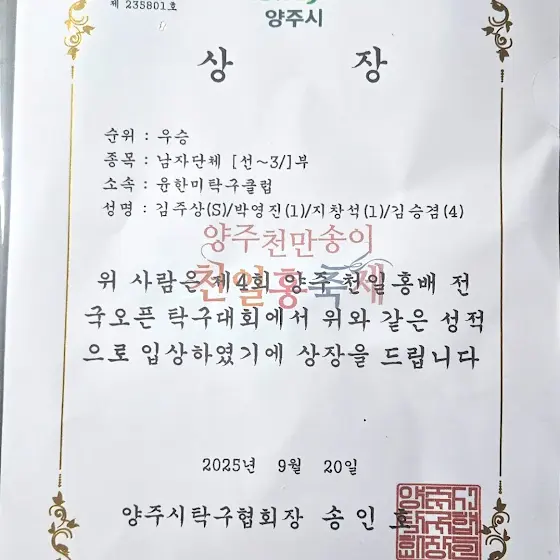 제 235801호
양주시
상 장
순위 : 우승
종목 : 남자단체 [선~3/]부
소속 : 윤한미탁구클럽
성명 : 김주상(S)/박영진(1)/지창석(1)/김승겸(4)
양주천만송이
천일홍축제
위 사람은 제4회 양주 천일홍배 전
국오픈 탁구대회에서 위와 같은 성적
으로 입상하였기에 상장을 드립니다
2025년 9월 20일
양주시탁구협회장 송인호